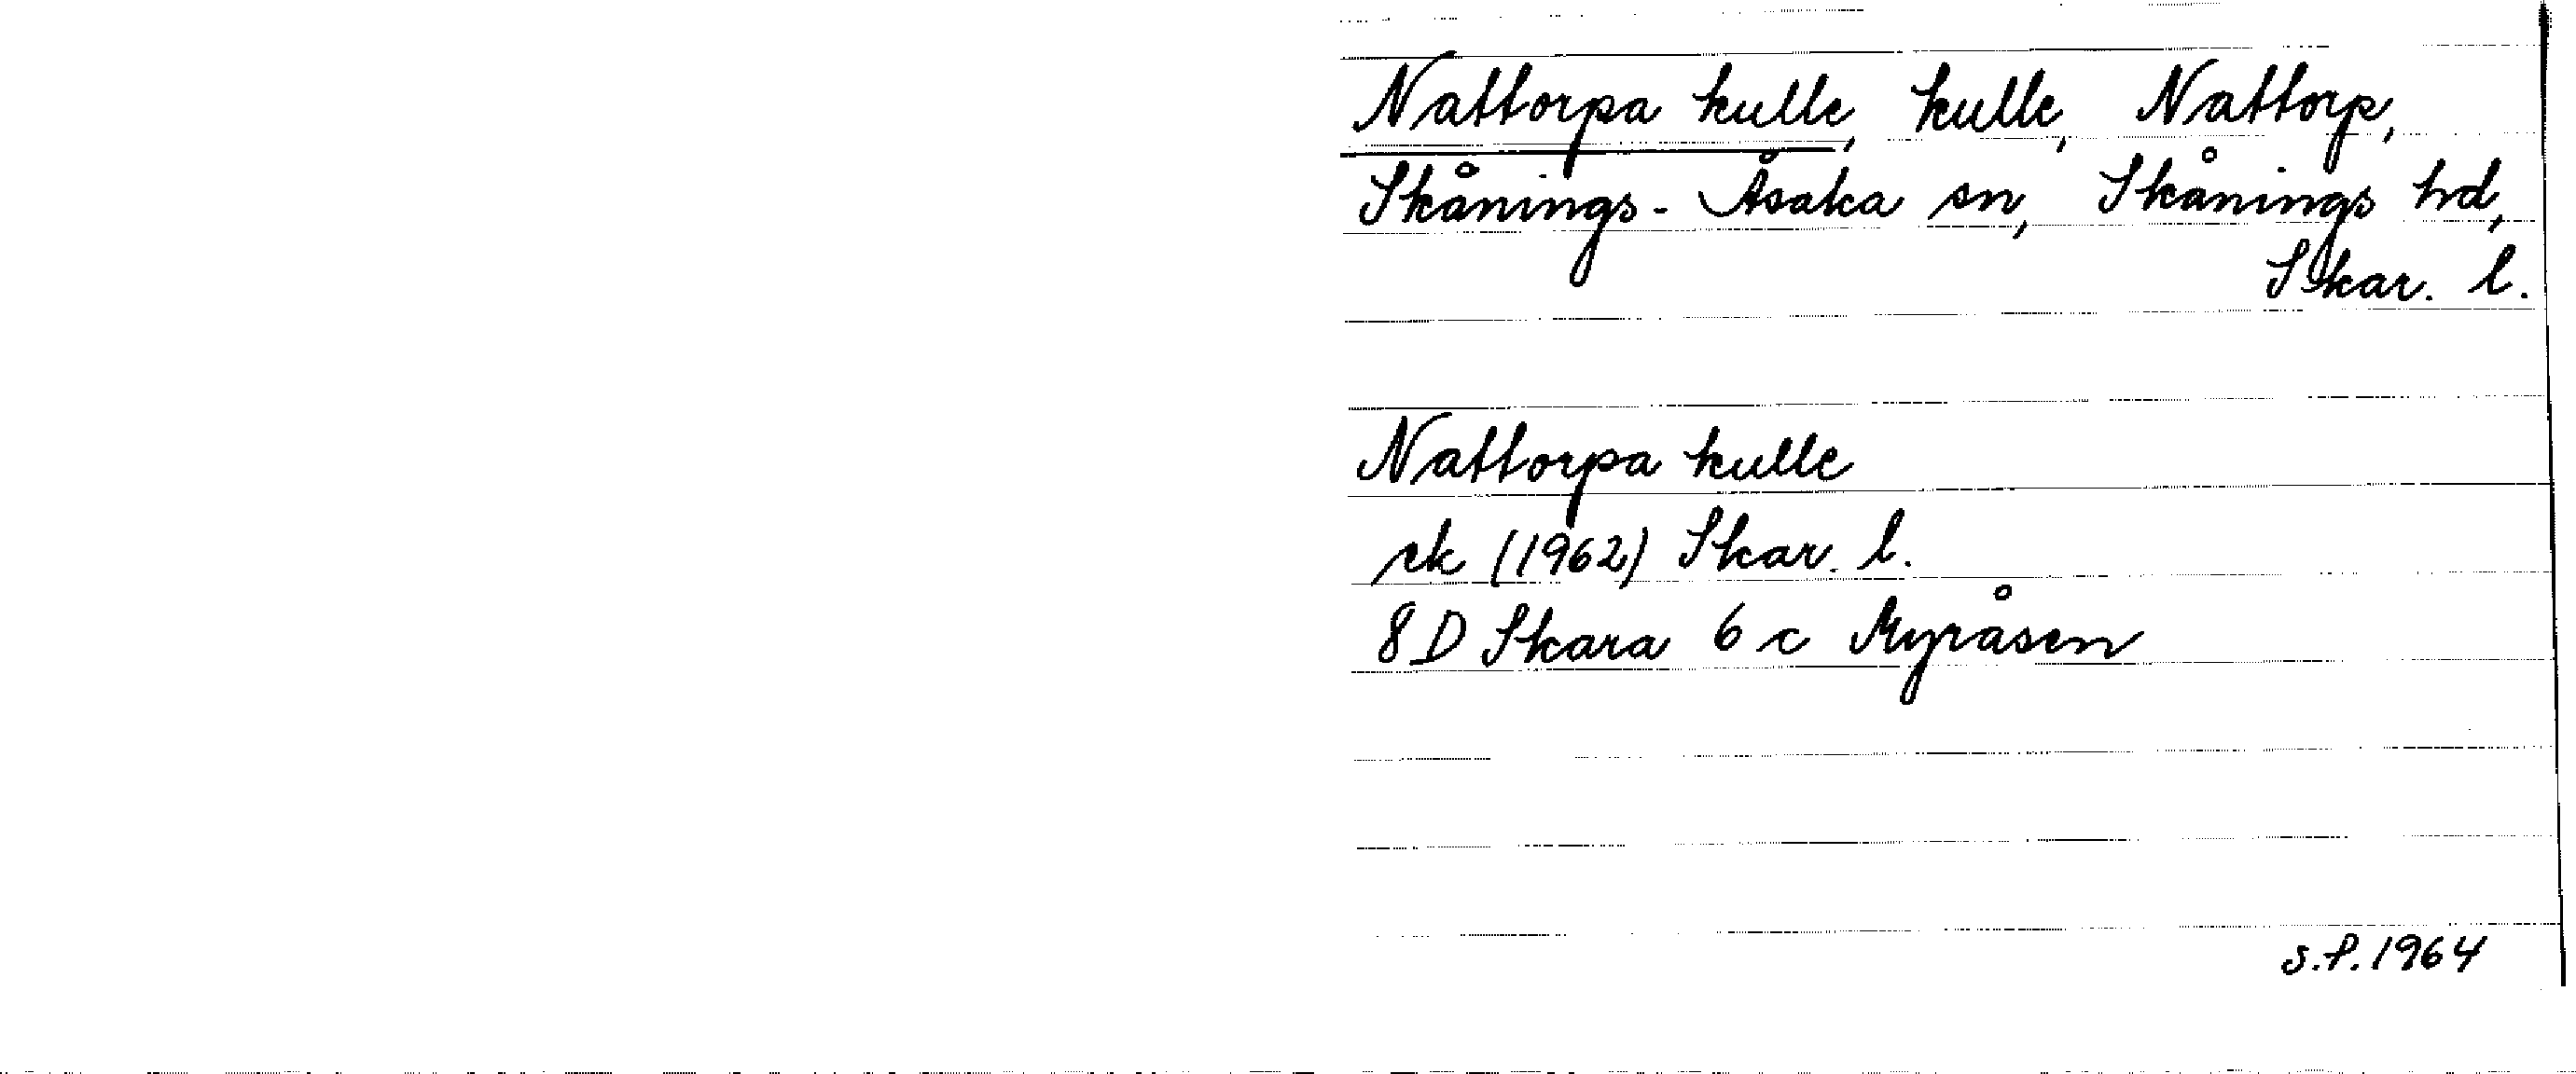 Nattorpa kulle, kulle, Nattorp,
Skånings-Åsaka sn, Skånings hd,
Skar. l.
Nattorpa kulle
ek (1962) Skar. l.
8D Skara 6 c Myråsen
S.P. 1964